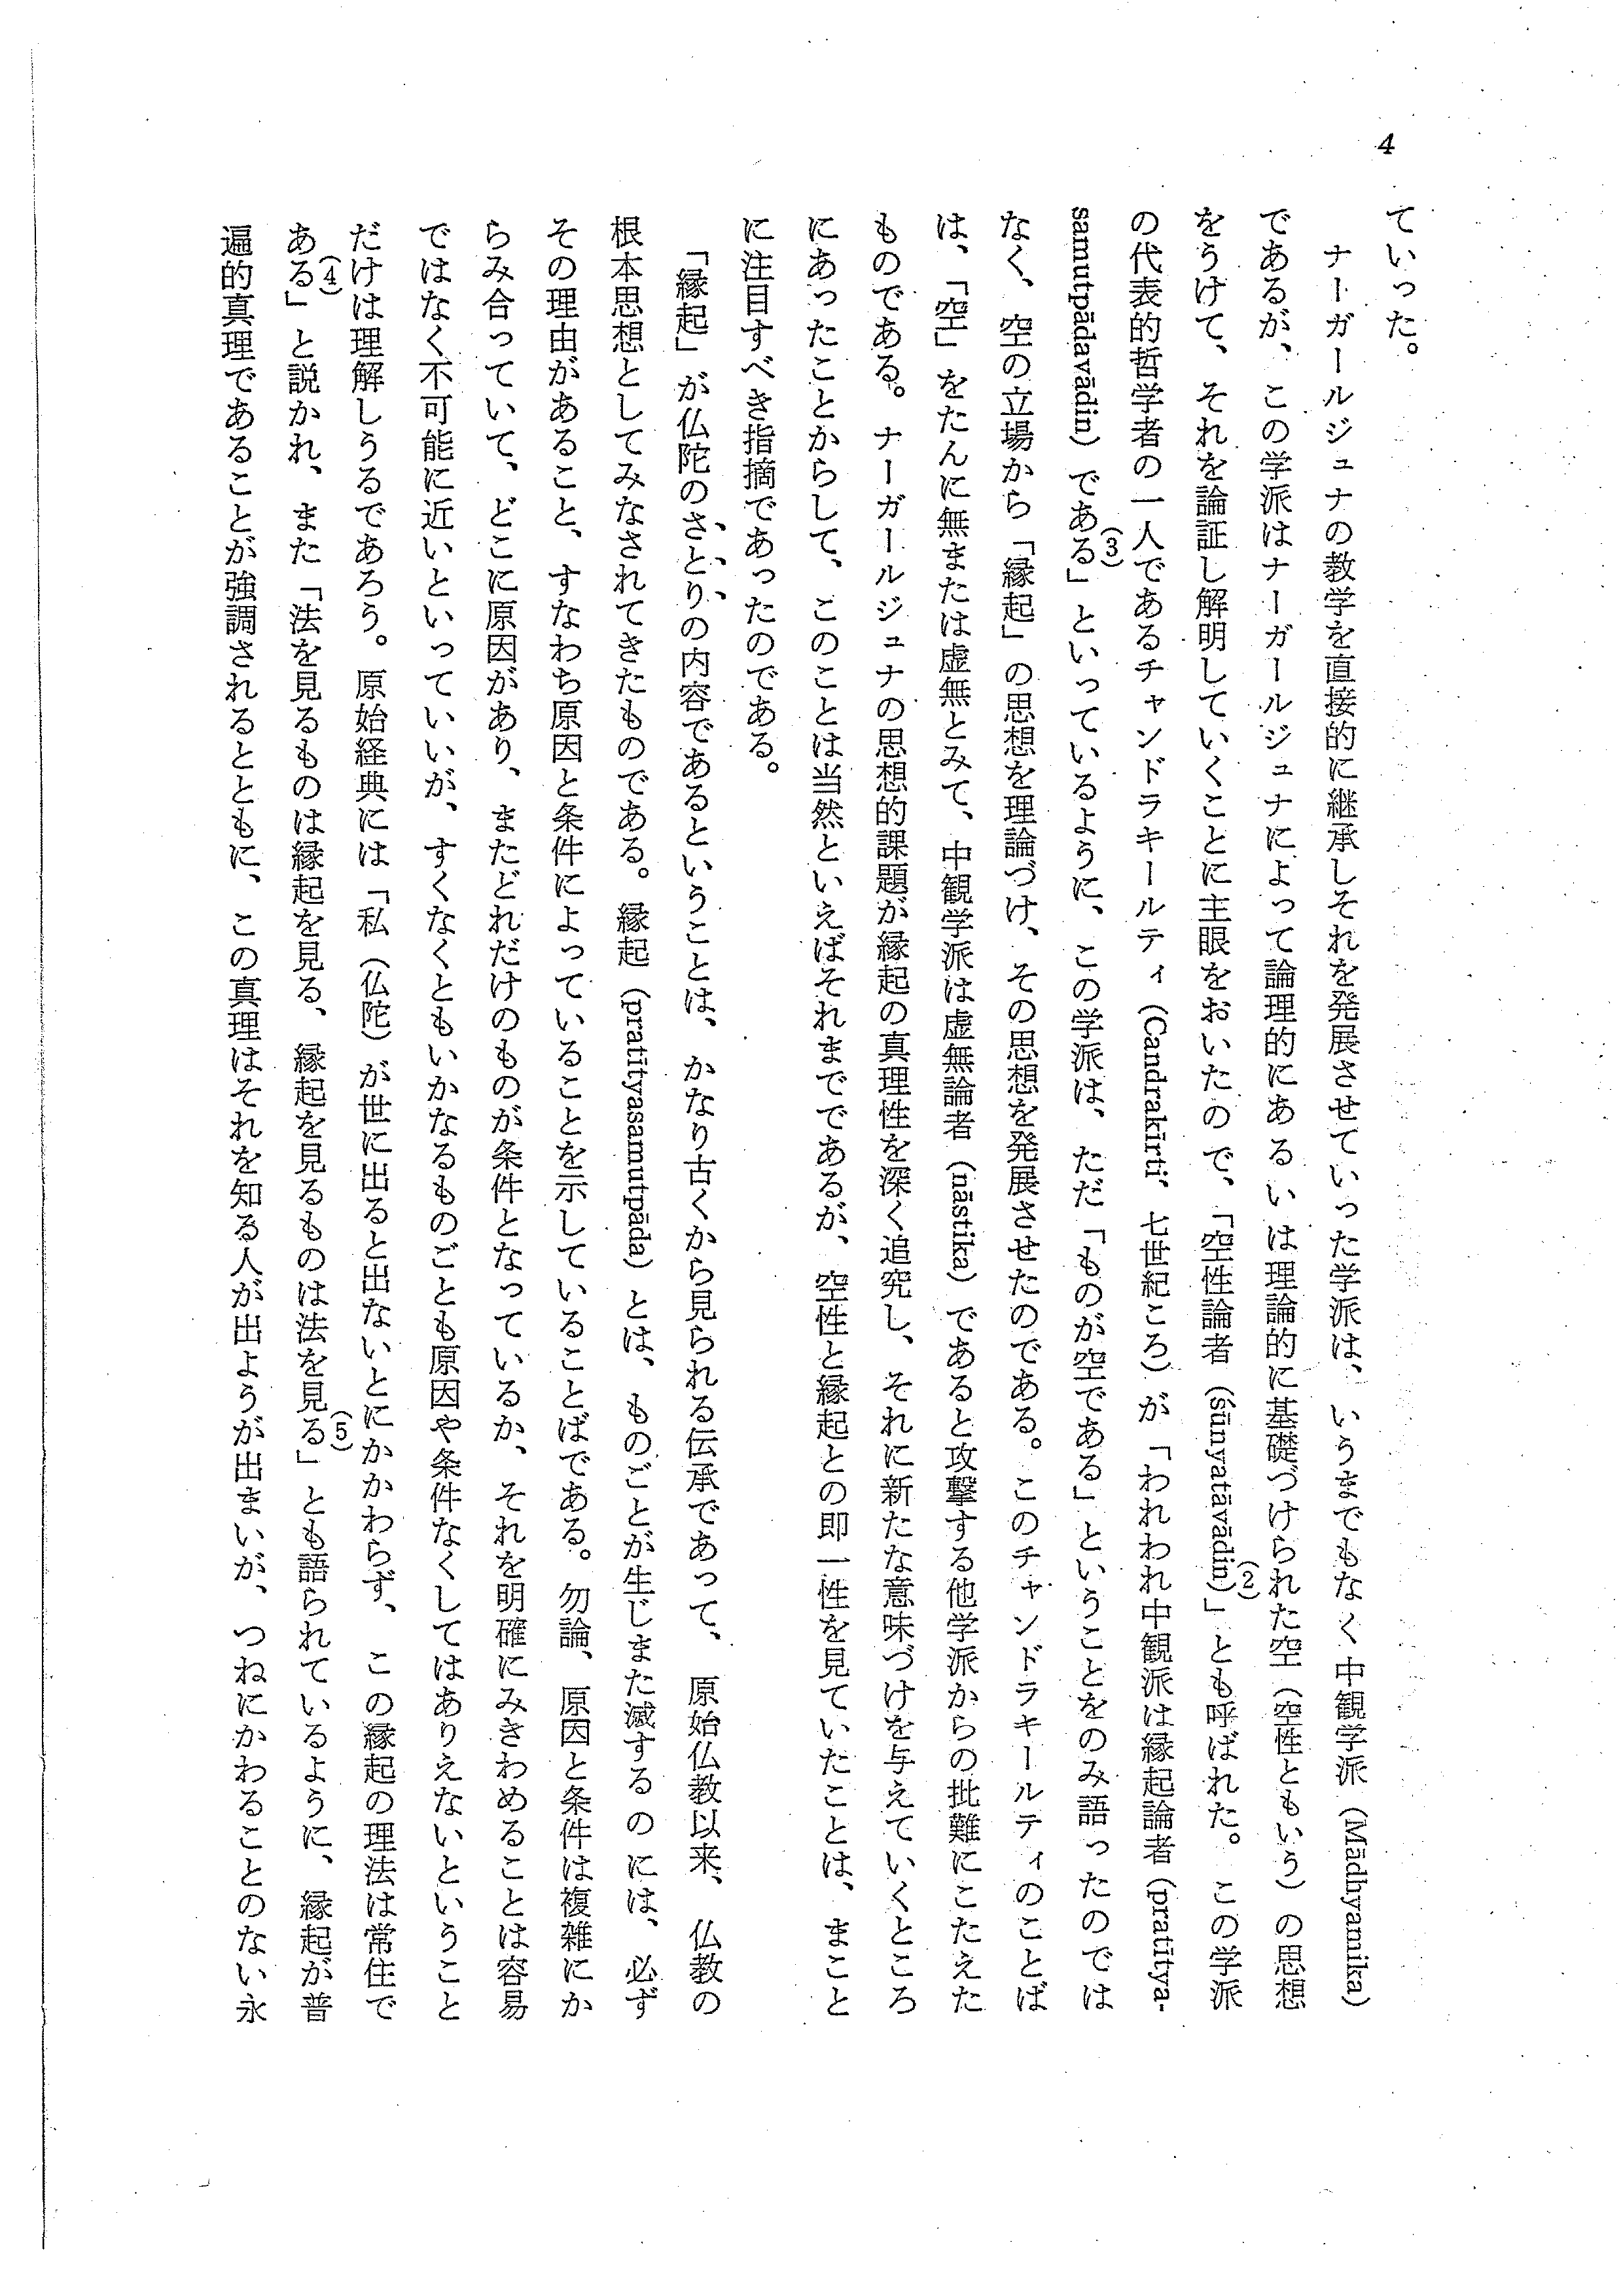 4
ていった。
ナーガールジュナの教学を直接的に継承しそれを発展させていった学派は、いうまでもなく中観学派(Mādhyamika)
であるが、この学派はナーガールジュナによって論理的にあるいは理論的に基礎づけられた空(空性ともいう)の思想
をうけて、それを論証し解明していくことに主眼をおいたので、「空性論者(śūnyatāvādin)(2)」とも呼ばれた。この学派
の代表的哲学者の一人であるチャンドラキールティ(Candrakīrti, 七世紀ころ)が「われわれ中観派は縁起論者(pratītya-
samutpādavādin)である(3)」といっているように、この学派は、ただ「ものが空である」ということをのみ語ったのでは
なく、空の立場から「縁起」の思想を理論づけ、その思想を発展させたのである。このチャンドラキールティのことば
は、「空」をたんに無または虚無とみて、中観学派は虚無論者(nāstika)であると攻撃する他学派からの批難にこたえた
ものである。ナーガールジュナの思想的課題が縁起の真理性を深く追究し、それに新たな意味づけを与えていくところ
にあったことからして、このことは当然といえばそれまでであるが、空性と縁起との即一性を見ていたことは、まこと
に注目すべき指摘であったのである。
「縁起」が仏陀のさとりの内容であるということは、かなり古くから見られる伝承であって、原始仏教以来、仏教の
根本思想としてみなされてきたものである。縁起(pratītyasamutpāda)とは、ものごとが生じまた滅するのには、必ず
その理由があること、すなわち原因と条件によっていることを示していることばである。勿論、原因と条件は複雑にか
らみ合っていて、どこに原因があり、またどれだけのものが条件となっているか、それを明確にみきわめることは容易
ではなく不可能に近いといっていいが、すくなくともいかなるものごとも原因や条件なくしてはありえないということ
だけは理解しうるであろう。原始経典には「私(仏陀)が世に出ると出ないとにかかわらず、この縁起の理法は常住で
ある(4)」と説かれ、また「法を見るものは縁起を見る、縁起を見るものは法を見る(5)」とも語られているように、縁起が普
遍的真理であることが強調されるとともに、この真理はそれを知る人が出ようが出まいが、つねにかわることのない永